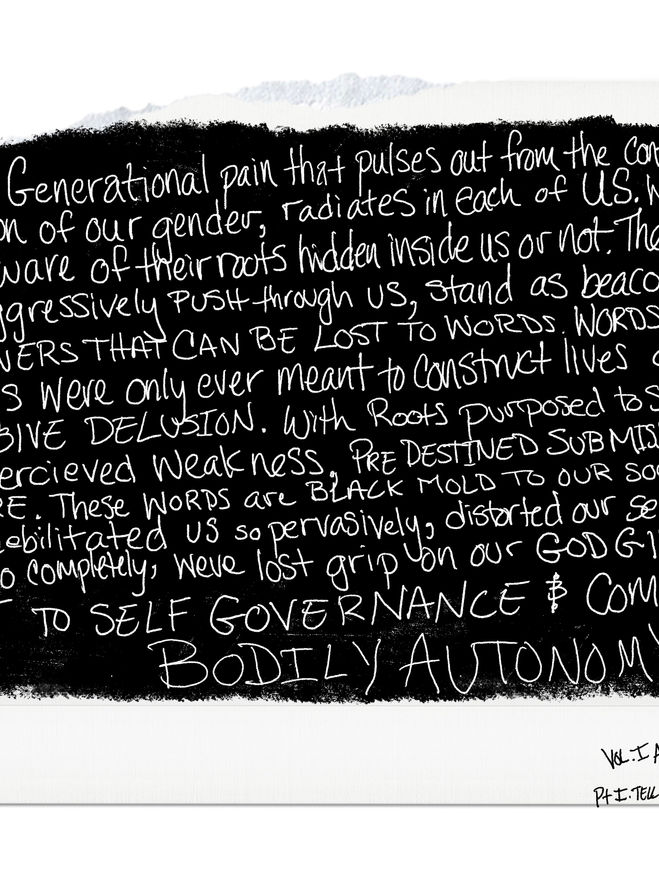 Generational pain that pulses out from the con
on of our gender, radiates in each of US. W
ware of their roots hidden inside us or not. The
ggressively PUSH through US, stand as beaco
VERS THAT CAN BE LOST TO WORDS. WORDS
S were only ever meant to construct lives
SIVE DELUSION. With Roots purposed to S
ercieved weakness, PREDESTINED SUBMIS
RE. These WORDS are BLACK MOLD TO OUR SO
ebilitated US so pervasively, distorted our se
o completely, weve lost grip on our GOD GI
T TO SELF GOVERNANCE & COM
BODILY AUTONOMY
VOL. I A
Pt I. TELL